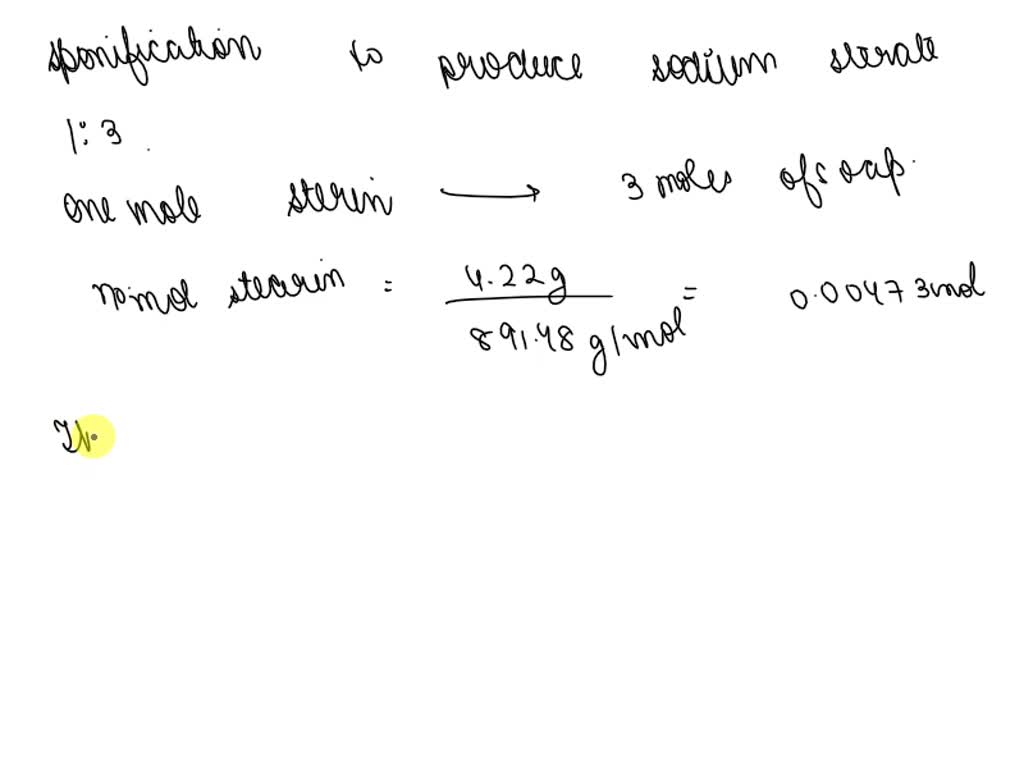 sponification to produce sodium sterate
1:3.
one mole sterin → 3 moles of soap.
no mol stearin = 4.22g / 891.48 g/mol = 0.00473 mol